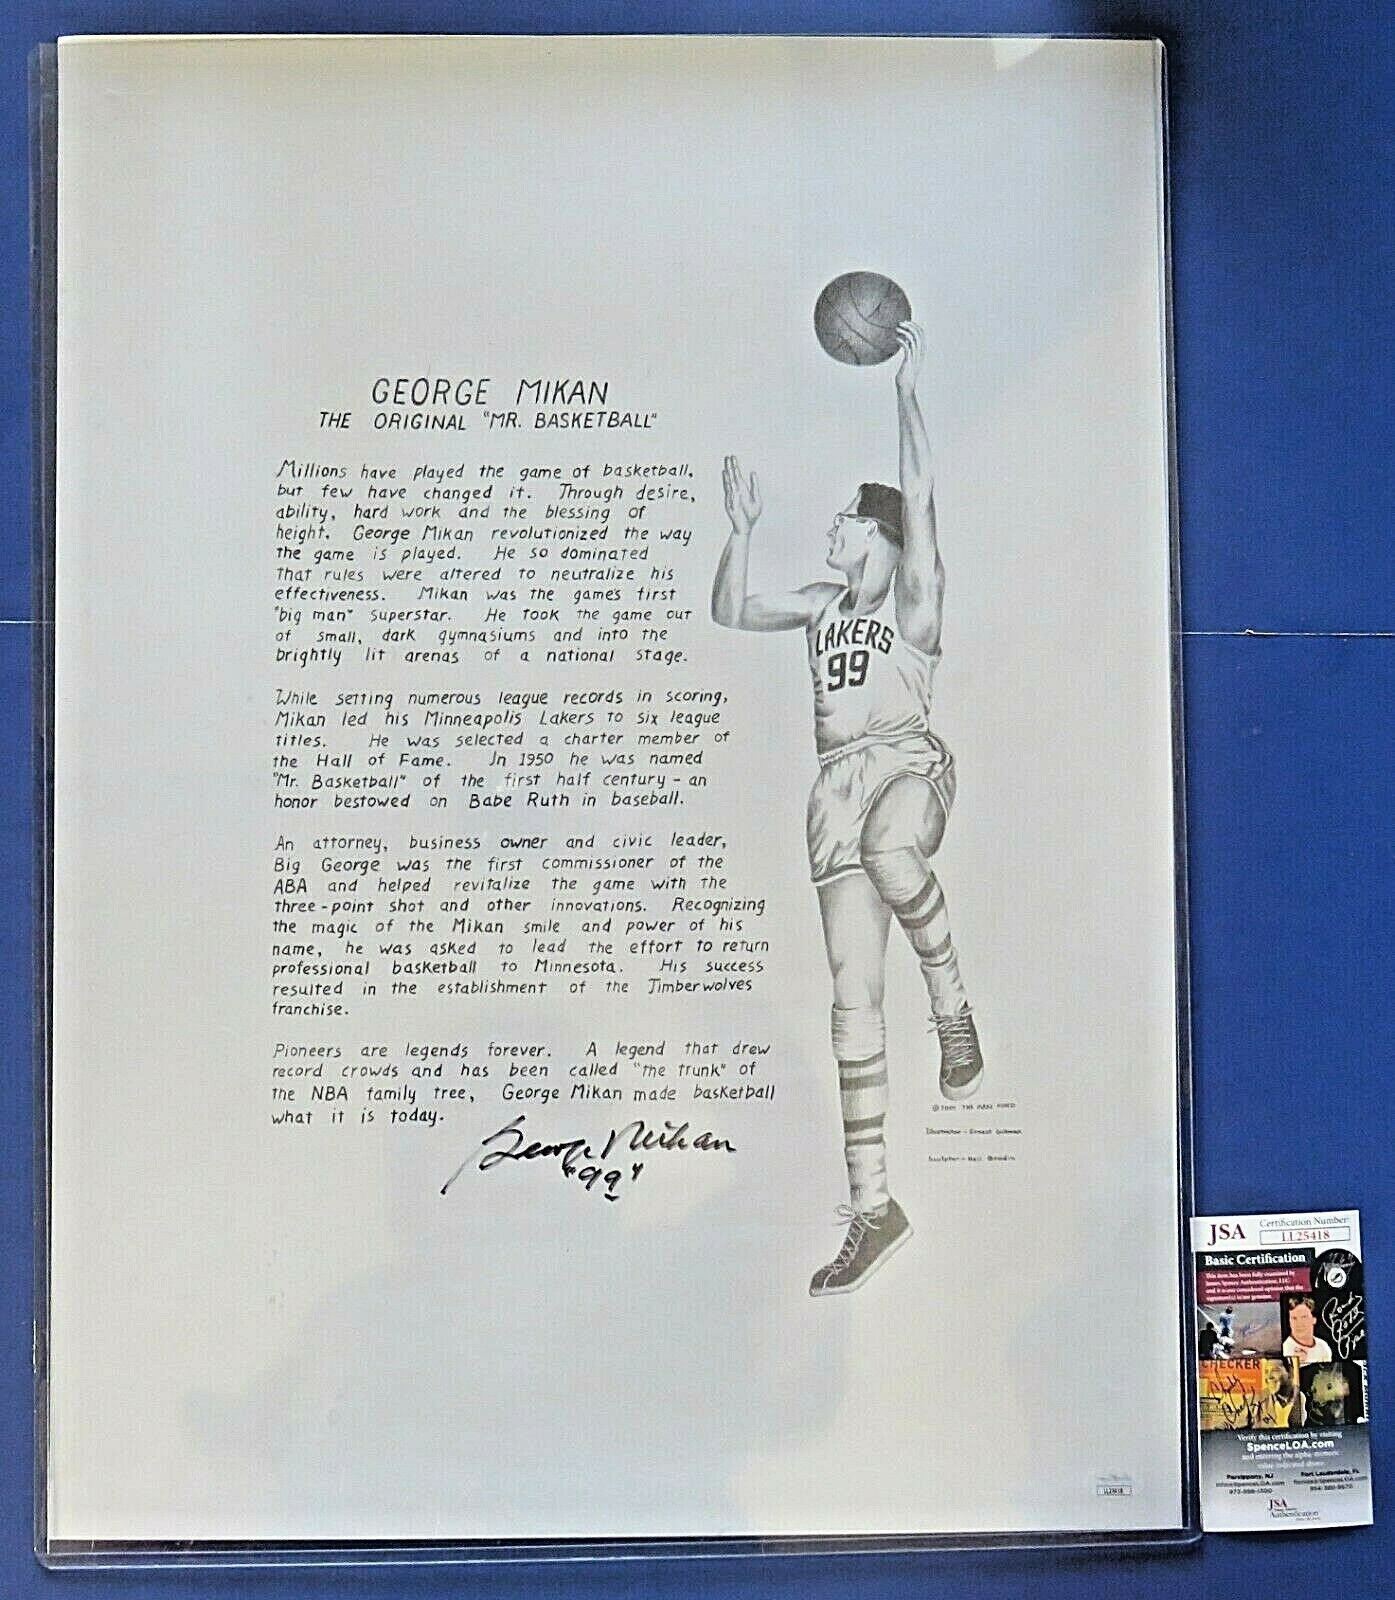 GEORGE MIKAN
THE ORIGINAL "MR. BASKETBALL"
Millions have played the game of basketball,
but few have changed it. Through desire,
ability, hard work and the blessing of
height, George Mikan revolutionized the way
the game is played. He so dominated
that rules were altered to neutralize his
effectiveness. Mikan was the game's first
"big man" superstar. He took the game out
of small, dark gymnasiums and into the
brightly lit arenas of a national stage.
While setting numerous league records in scoring,
Mikan led his Minneapolis Lakers to six league
titles. He was selected a charter member of
the Hall of Fame. In 1950 he was named
"Mr. Basketball" of the first half century - an
honor bestowed on Babe Ruth in baseball.
An attorney, business owner and civic leader,
Big George was the first commissioner of the
ABA and helped revitalize the game with the
three-point shot and other innovations. Recognizing
the magic of the Mikan smile and power of his
name, he was asked to lead the effort to return
professional basketball to Minnesota. His success
resulted in the establishment of the Timberwolves
franchise.
Pioneers are legends forever. A legend that drew
record crowds and has been called "the trunk" of
the NBA family tree, George Mikan made basketball
what it is today.
George Mikan
"99"
LAKERS
99
Illustrator - Ernest
Sculptor - Neil
LL25418
JSA
Certification Number:
LL25418
Basic Certification
This item has been fully examined by
James Spence Authentication, LLC
and it is our considered opinion that the
signature(s) is/are genuine.
CHECKER
Verify this certification by visiting
SpenceLOA.com
and entering the alpha-numeric
value indicated above.
Parsippany, NJ
Fort Lauderdale, FL
JSA
Authentication